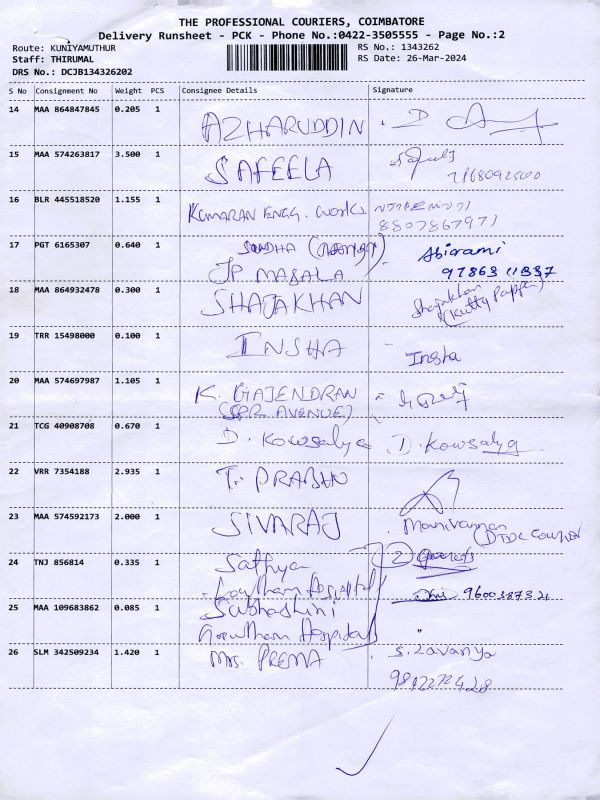 THE PROFESSIONAL COURIERS, COIMBATORE
Delivery Runsheet - PCK - Phone No.:0422-3505555 - Page No.:2
Route: KUNIYAMUTHUR RS No.: 1343262
Staff: THIRUMAL RS Date: 26-Mar-2024
DRS No.: DCJB134326202
S No Consignment No Weight PCS Consignee Details Signature
14 MAA 864847845 0.205 1
AZHARUDDIN
15 MAA 574263817 3.500 1
SAFEELA
16 BLR 445518520 1.155 1
KUMARAN ENGG. WORKS
8807867971
17 PGT 6165307 0.640 1
SUDHA Abirami
JP MASALA 97863 11337
18 MAA 864932478 0.300 1
SHAJAKHAN Shajakhan
(Kutty Pappa)
19 TRR 15498000 0.100 1
INSHA Insha
20 MAA 574697987 1.105 1
K. GAJENDRAN
(SPR AVENUE)
21 TCG 40908708 0.670 1
D. Kowsalya D. Kowsalya
22 VRR 7354188 2.935 1
T. PRABHN
23 MAA 574592173 2.000 1
SIVARAJ Manivannan
(DTDC COURIER
24 TNJ 856814 0.335 1
Sathya 2
Gowtham Hospital
25 MAA 109683862 0.085 1
Subhashini
Gowtham Hospitals "
26 SLM 342509234 1.420 1
Mrs. PREMA S. Lavanya